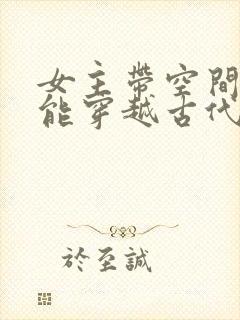 女主帶空間
能穿越古代
於至誠